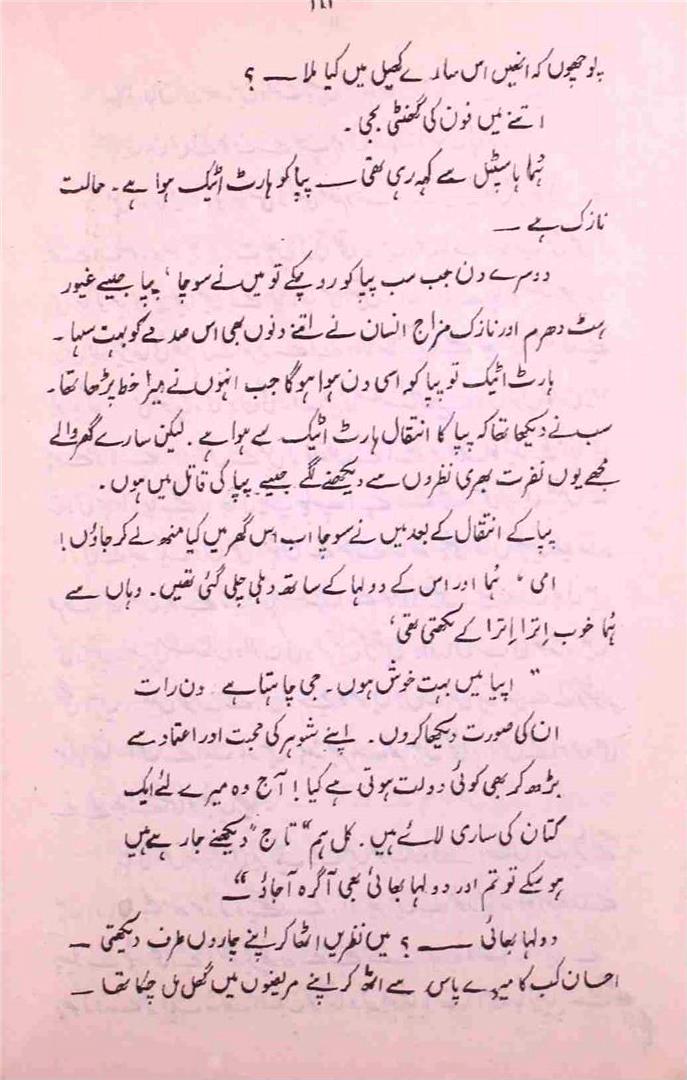 پوچھوں کہ انھیں اس سارے کھیل میں کیا ملا — ؟
اتنے میں فون کی گھنٹی بجی۔
ہُما ہاسپٹل سے کہہ رہی تھی — پپا کو ہارٹ اٹیک ہوا ہے۔ حالت
نازک ہے —
دوسرے دن جب سب پپا کو رو چکے تو میں نے سوچا، پپا جیسے غیور
ہٹ دھرم اور نازک مزاج انسان نے اتنے دنوں بھی اس صدمے کو بہت سہا۔
ہارٹ اٹیک تو پپا کو اسی دن ہوا ہوگا جب انہوں نے میرا خط پڑھا تھا۔
سب نے دیکھا تھا کہ پپا کا انتقال ہارٹ اٹیک سے ہوا ہے۔ لیکن سارے گھر والے
مجھے یوں نفرت بھری نظروں سے دیکھنے لگے جیسے پپا کی قاتل میں ہوں۔
پپا کے انتقال کے بعد میں نے سوچا اب اس گھر میں کیا منھ لے کر جاؤں!
امی، ہُما اور اس کے دولہا کے ساتھ دہلی چلی گئی تھیں۔ وہاں سے
ہُما خوب اِترا اِترا کے لکھتی تھی،
"اپیا میں بہت خوش ہوں۔ جی چاہتا ہے دن رات
ان کی صورت دیکھا کروں۔ اپنے شوہر کی محبت اور اعتماد سے
بڑھ کر بھی کوئی دولت ہوتی ہے کیا! آج وہ میرے لئے ایک
کتان کی ساری لائے ہیں۔ کل ہم "تاج" دیکھنے جا رہے ہیں
ہو سکے تو تم اور دولہا بھائی بھی آگرہ آجاؤ"
دولہا بھائی — ؟ میں نظریں اٹھا کر اپنے چاروں طرف دیکھتی —
احسان کب کا میرے پاس سے اٹھ کر اپنے مریضوں میں گھل مل چکا تھا —